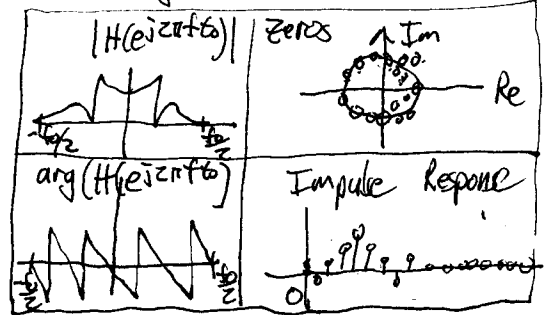 |H(e^{j2πft₀})|
-f₀/2
f₀/2
Zeros
Im
Re
arg(H(e^{j2πft₀})
-f₀/2
f₀/2
Impulse Response
0